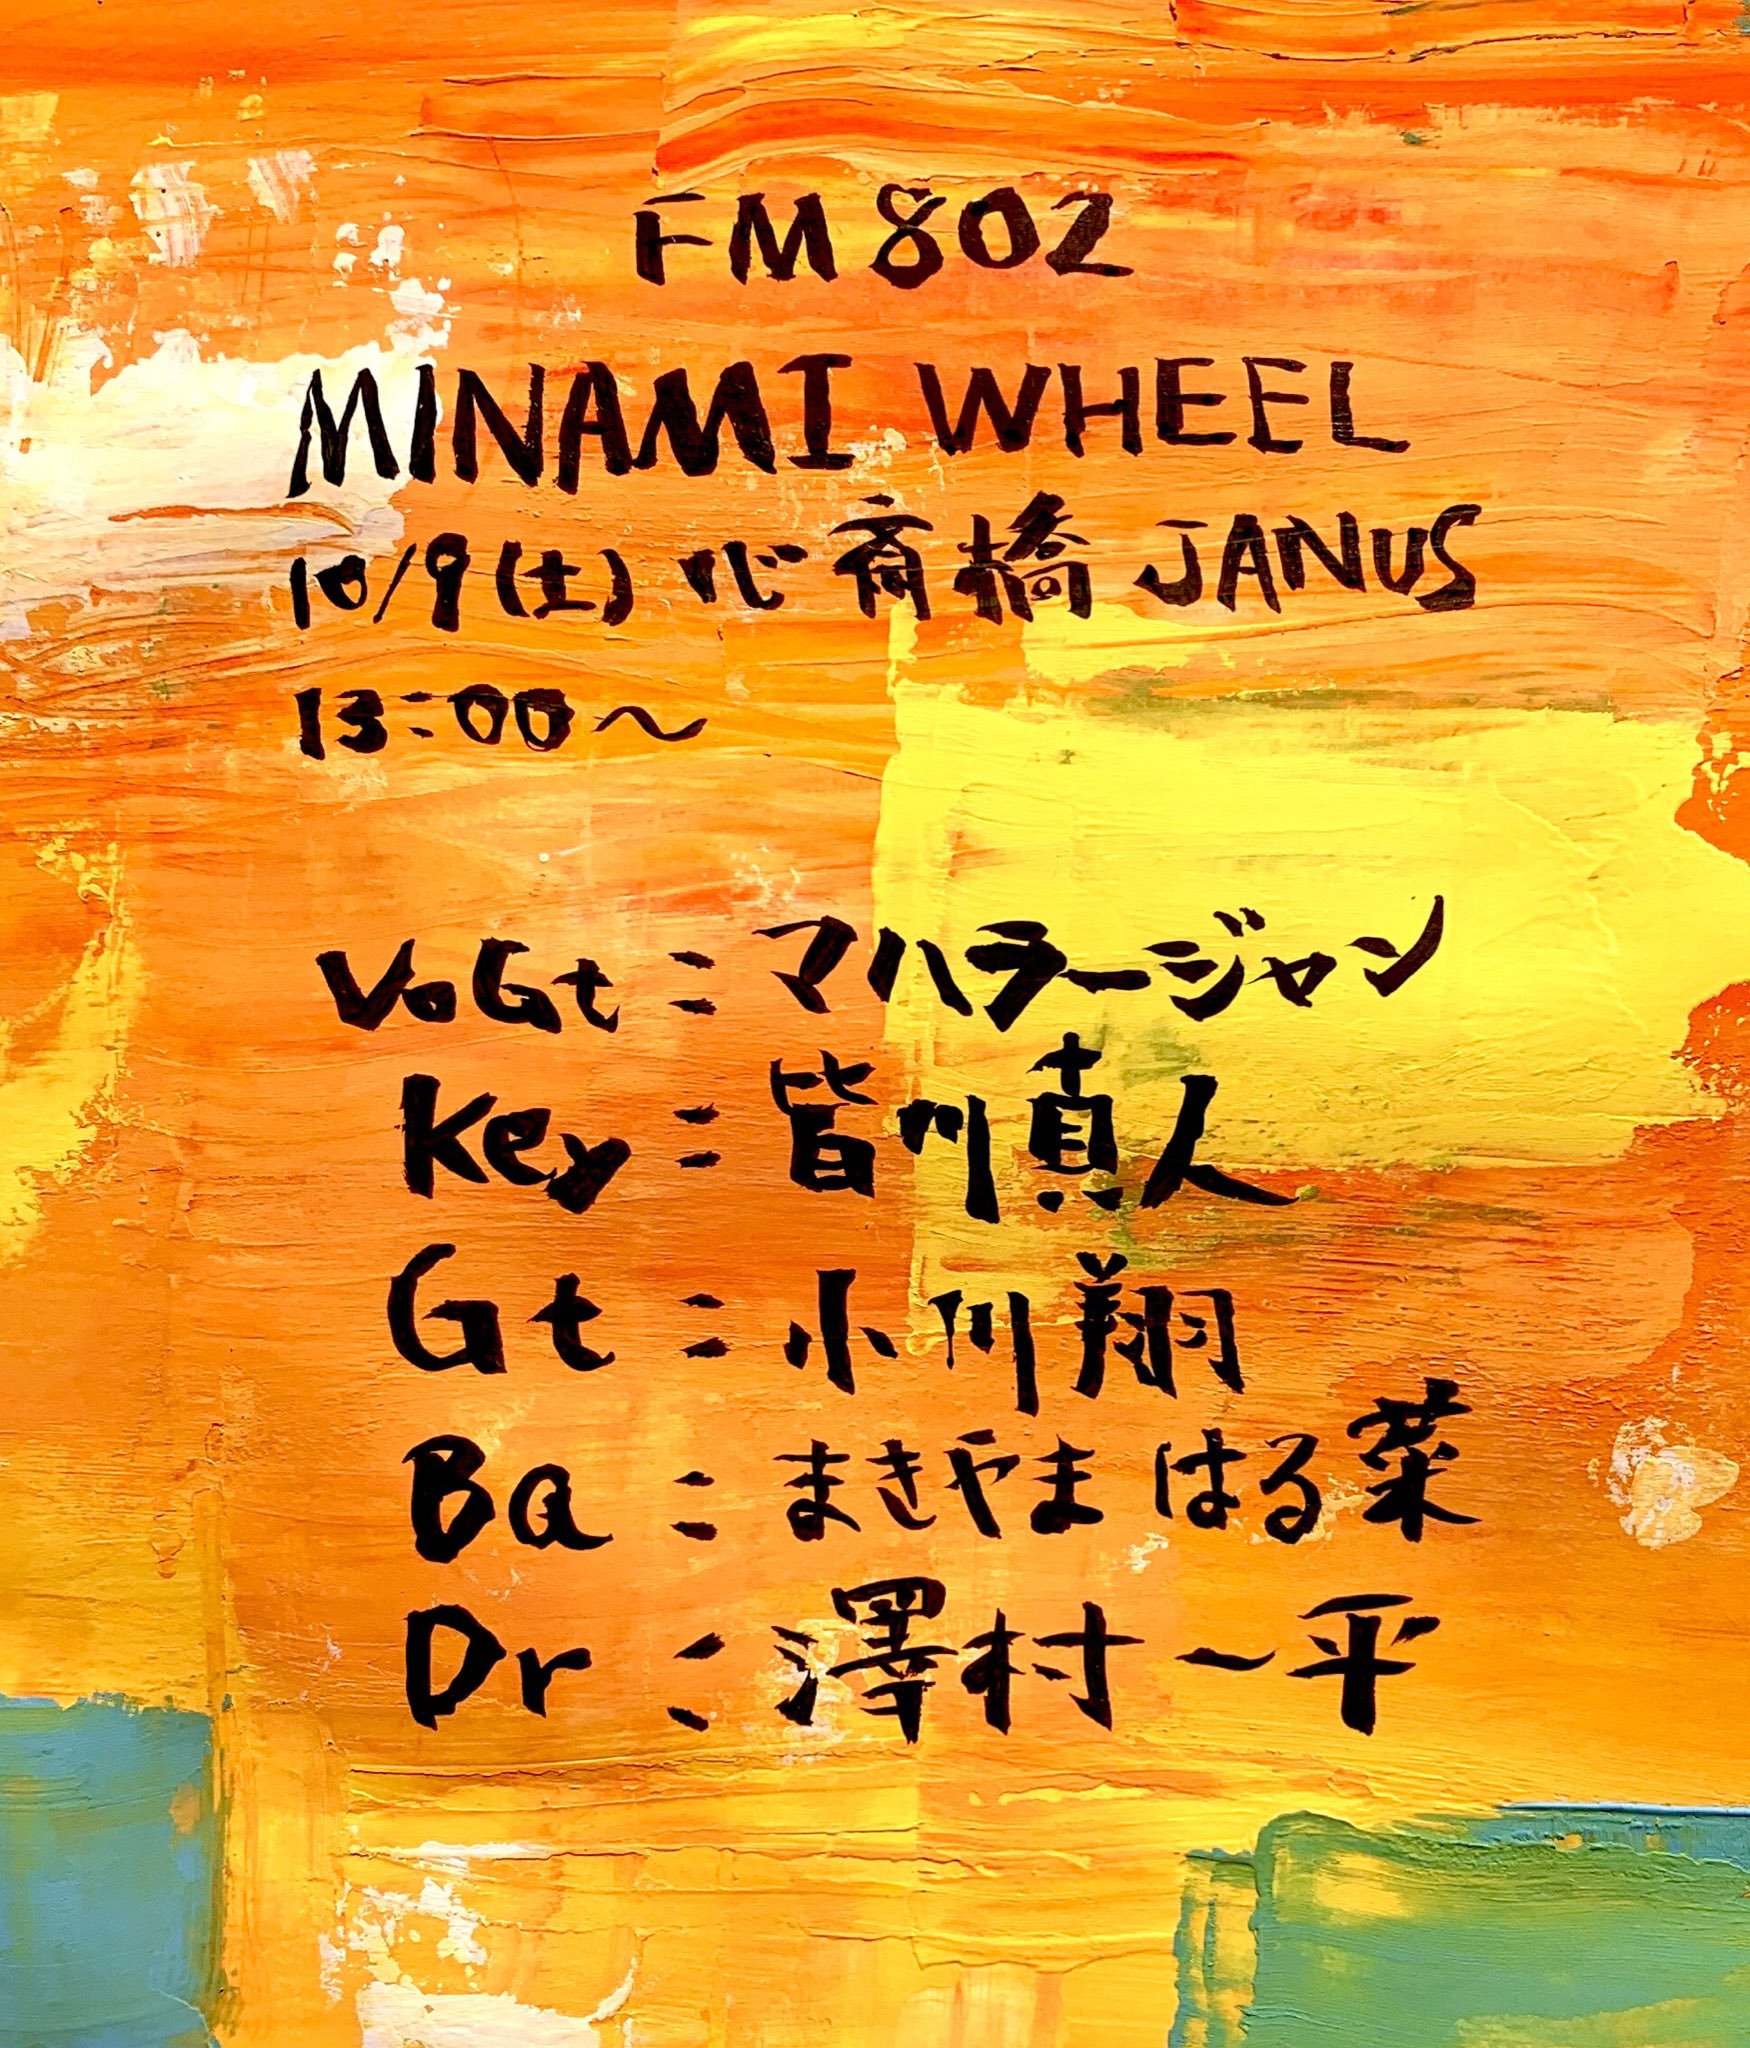 FM802
MINAMI WHEEL
10/9(土) 心斎橋 JANUS
13:00〜
VoGt:マハラージャン
Key:皆川真人
Gt:小川翔
Ba:まきやまはる菜
Dr:澤村一平